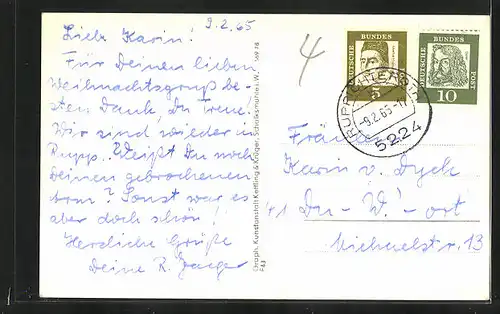 9.2.65
Liebe Karin!
Für Deinen lieben
Weihnachtsgruß be-
sten Dank, Du Treue!
Wir sind wieder in
Rupp.. Weißt Du noch
Deinen gebrochenen
Arm? Sonst war es
aber doch schön!
Herzliche Grüße
Deine R. Jaeger
Graph. Kunstanstalt Kettling & Krüger, Schalksmühle i. W.
4
DEUTSCHE BUNDESPOST
5
DEUTSCHE BUNDESPOST
10
-9.2.65-17
5224
Fräulein
Karin v. Dyck
41 Du-W'-ort
Michaelstr. 13